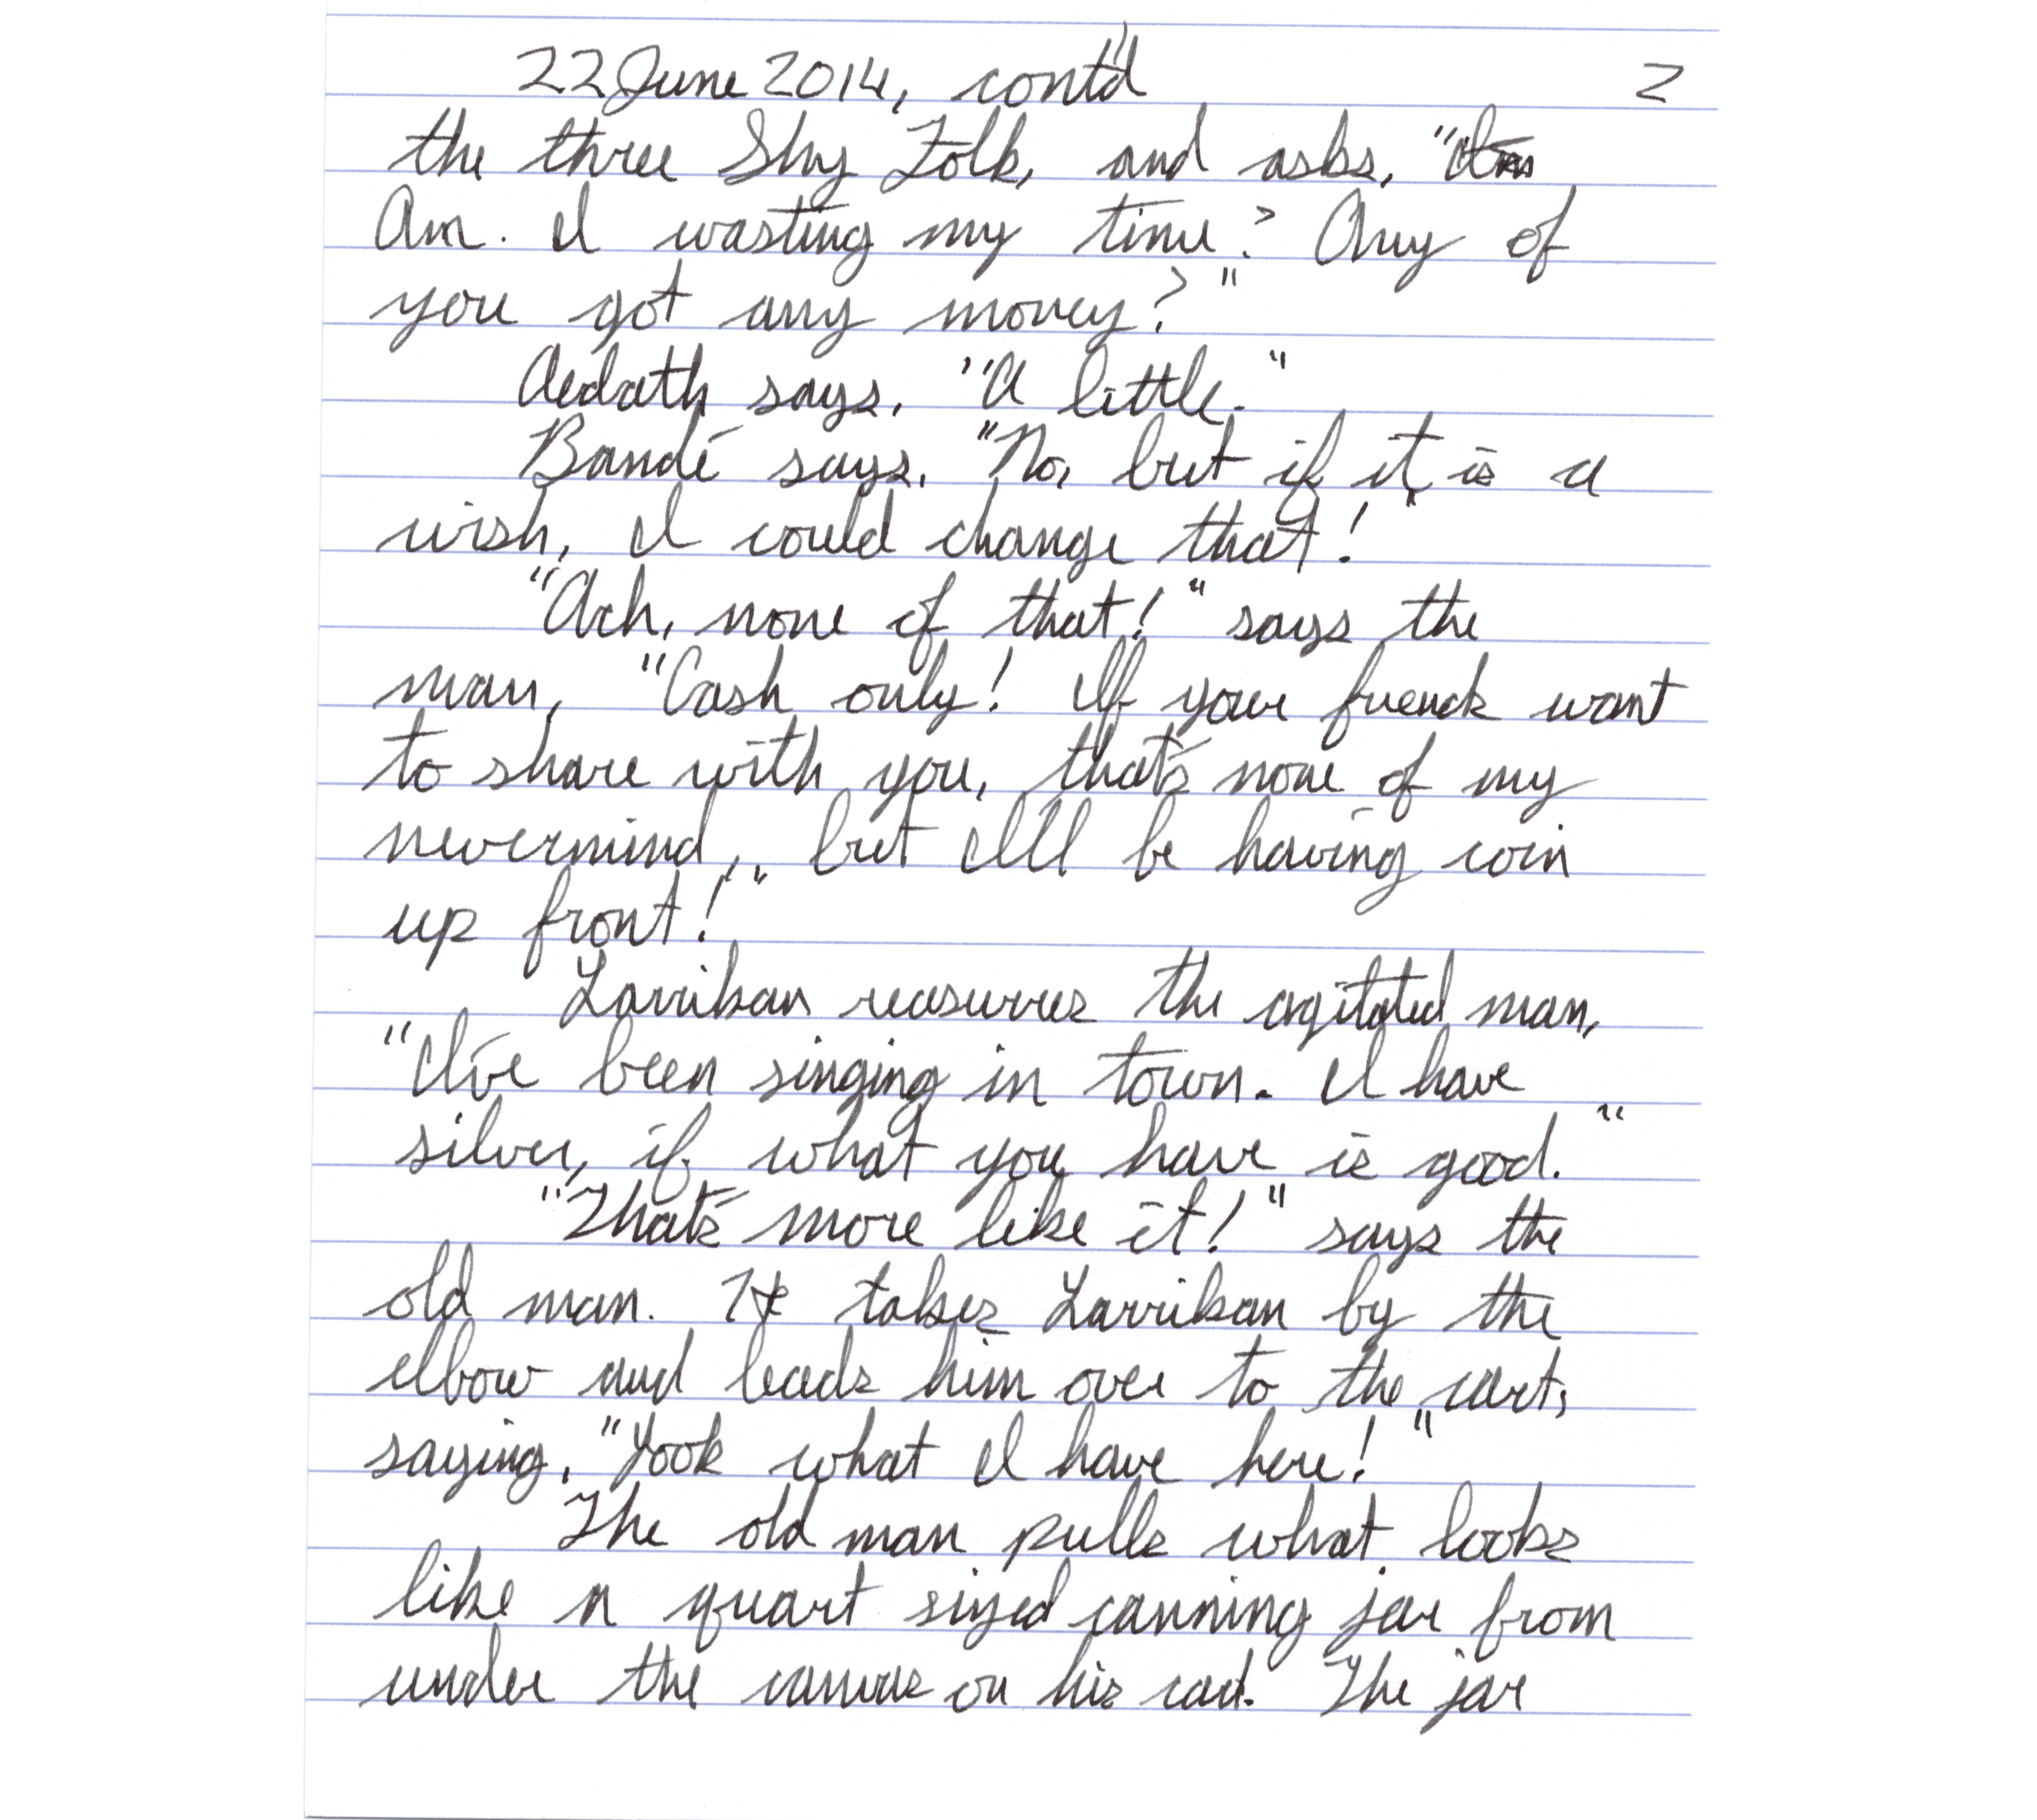 22 June 2014, cont'd 2
the three Shy Folk, and asks, "
Am I wasting my time? Any of
you got any money?"
Aedath says, "A little."
Bandé says, "No, but if it is a
wish, I could change that!"
"Ach, none of that!" says the
man, "Cash only! If your friends want
to share with you, that's none of my
nevermind, but I'll be having coin
up front!"
Larrikan reasurres the agitated man,
"I've been singing in town. I have
silver, if what you have is good."
"That's more like it!" says the
old man. He takes Larrikan by the
elbow and leads him over to the cart,
saying, "Look what I have here!"
The old man pulls what looks
like a quart sized canning jar from
under the canvas on his cart. The jar